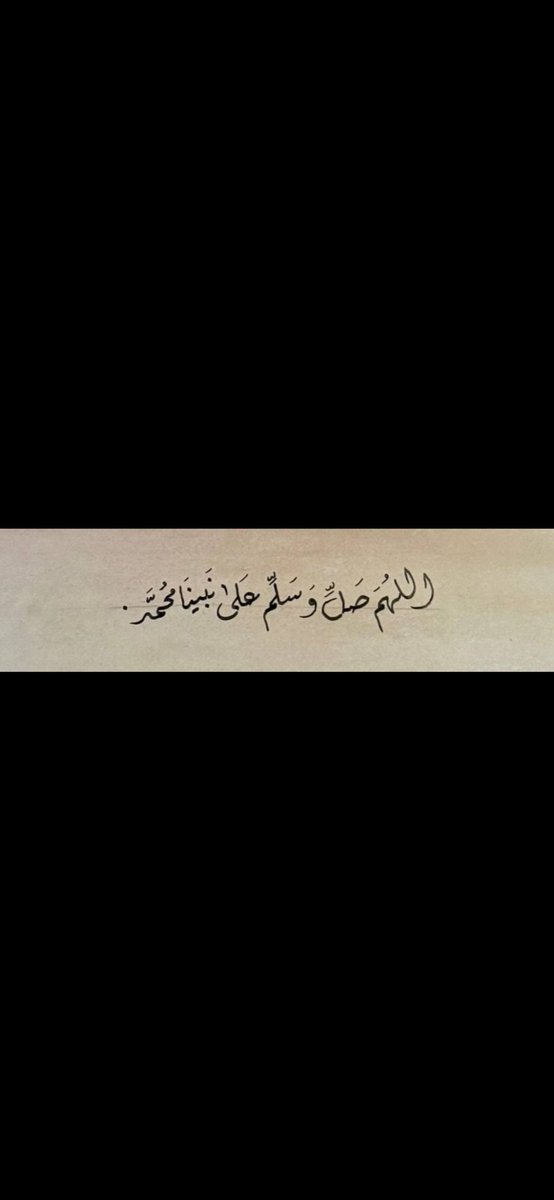 اللهُمَ صَلِّ وَسَلِّم عَلىٰ نَبينَا محُمَّد .